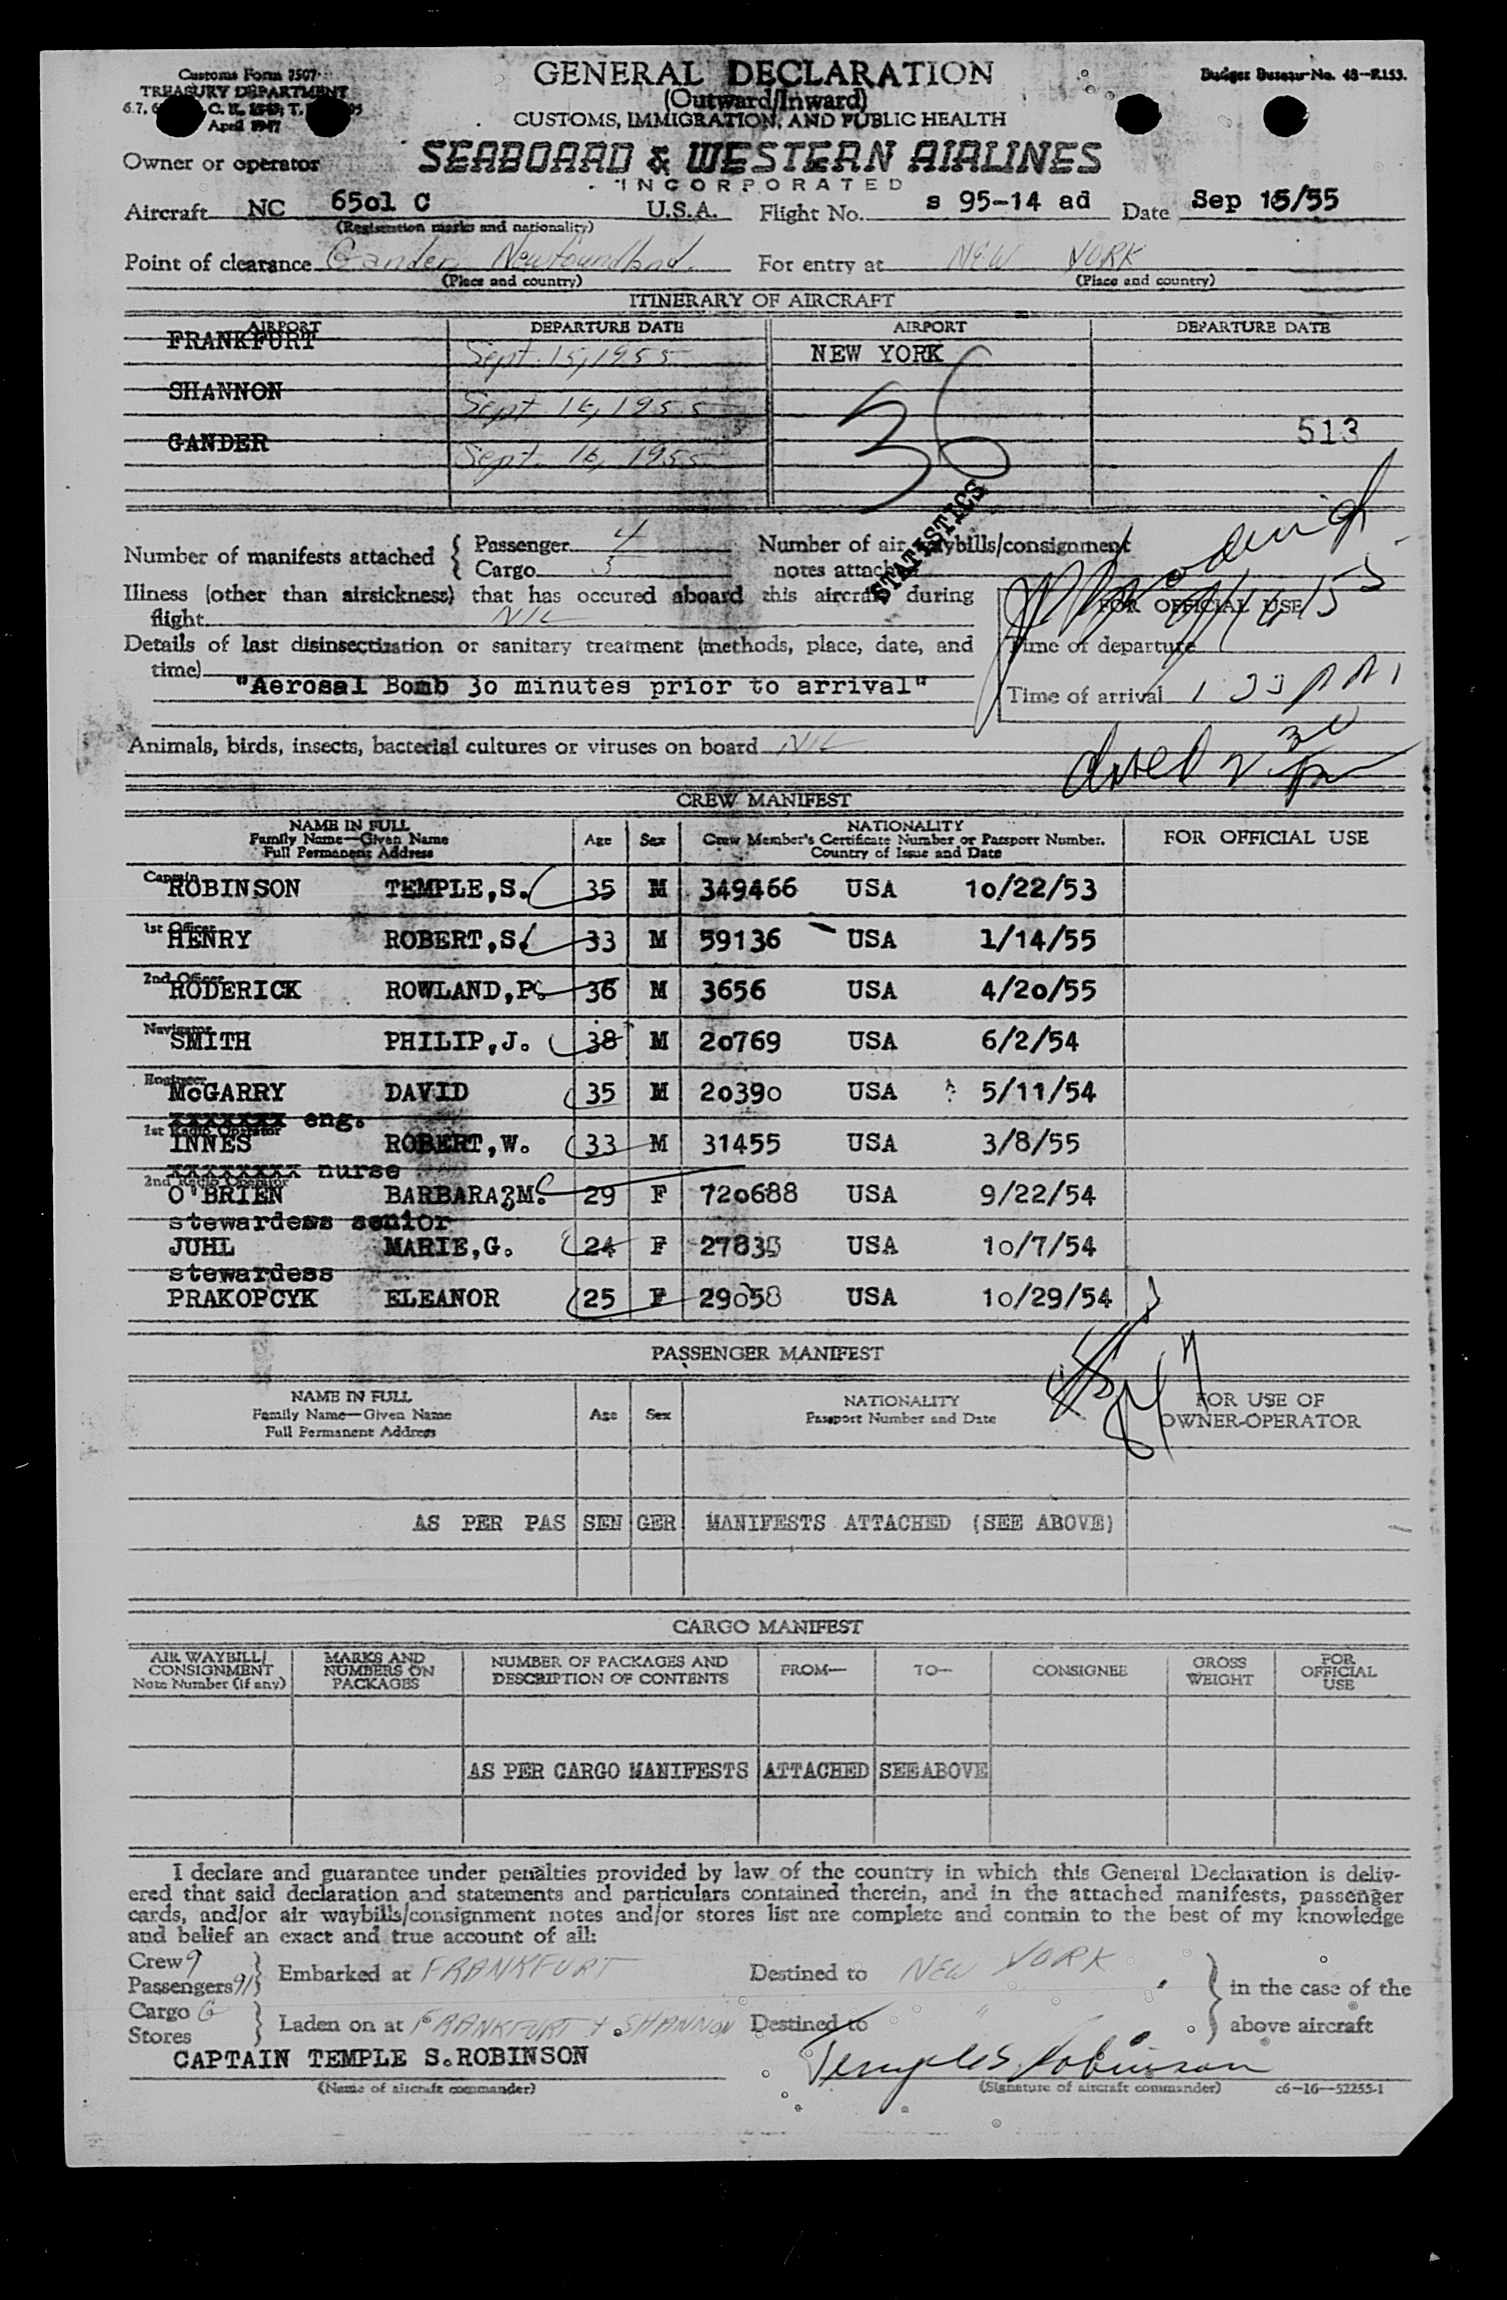 Customs Form 7507
TREASURY DEPARTMENT
April 1947
GENERAL DECLARATION
(Outward/Inward)
CUSTOMS, IMMIGRATION, AND PUBLIC HEALTH
Budget Bureau No. 48-R153.
Owner or operator SEABOARD & WESTERN AIRLINES
INCORPORATED
Aircraft NC 6501 C U.S.A. Flight No. s 95-14 ad Date Sep 15/55
(Registration marks and nationality)
Point of clearance Gander Newfoundland. For entry at NEW YORK
(Place and country) (Place and country)
ITINERARY OF AIRCRAFT
AIRPORT DEPARTURE DATE AIRPORT DEPARTURE DATE
FRANKFURT Sept. 15, 1955 NEW YORK
SHANNON Sept 16, 1955
GANDER Sept. 16, 1955
36
513
STATISTICS
Number of manifests attached { Passenger 4
Cargo 3
Number of air waybills/consignment
notes attached
Illness (other than airsickness) that has occured aboard this aircraft during
flight NIL
FOR OFFICIAL USE
9/16/55
Details of last disinsectization or sanitary treatment (methods, place, date, and
time)
"Aerosal Bomb 30 minutes prior to arrival"
Time of departure
Time of arrival 1 33 PM
Animals, birds, insects, bacterial cultures or viruses on board NIL
CREW MANIFEST
NAME IN FULL
Family Name—Given Name
Full Permanent Address
Age Sex
NATIONALITY
Crew Member's Certificate Number or Passport Number.
Country of Issue and Date
FOR OFFICIAL USE
Captain
ROBINSON TEMPLE,S. 35 M 349466 USA 10/22/53
1st Officer
HENRY ROBERT,S. 33 M 59136 USA 1/14/55
2nd Officer
RODERICK ROWLAND,P. 36 M 3656 USA 4/20/55
Navigator
SMITH PHILIP,J. 38 M 20769 USA 6/2/54
Engineer
McGARRY DAVID 35 M 20390 USA 5/11/54
xxxxxxx eng.
1st Radio Operator
INNES ROBERT,W. 33 M 31455 USA 3/8/55
xxxxxxxx nurse
2nd Radio Operator
O'BRIEN BARBARA,M. 29 F 720688 USA 9/22/54
stewardess senior
JUHL MARIE,G. 24 F 27835 USA 10/7/54
stewardess
PRAKOPCYK ELEANOR 25 F 29058 USA 10/29/54
PASSENGER MANIFEST
NAME IN FULL
Family Name—Given Name
Full Permanent Address
Age Sex
NATIONALITY
Passport Number and Date
FOR USE OF
OWNER-OPERATOR
AS PER PAS SEN GER MANIFESTS ATTACHED (SEE ABOVE)
CARGO MANIFEST
AIR WAYBILL/
CONSIGNMENT
Note Number (if any)
MARKS AND
NUMBERS ON
PACKAGES
NUMBER OF PACKAGES AND
DESCRIPTION OF CONTENTS
FROM— TO— CONSIGNEE
GROSS
WEIGHT
FOR
OFFICIAL
USE
AS PER CARGO MANIFESTS ATTACHED SEE ABOVE
I declare and guarantee under penalties provided by law of the country in which this General Declaration is deliv-
ered that said declaration and statements and particulars contained therein, and in the attached manifests, passenger
cards, and/or air waybills/consignment notes and/or stores list are complete and contain to the best of my knowledge
and belief an exact and true account of all:
Crew 9
Passengers 91 } Embarked at FRANKFURT Destined to NEW YORK } in the case of the
Cargo G
Stores } Laden on at FRANKFURT + SHANNON Destined to " } above aircraft
CAPTAIN TEMPLE S.ROBINSON Temple S. Robinson
(Name of aircraft commander) (Signature of aircraft commander) c6-16-52255-1